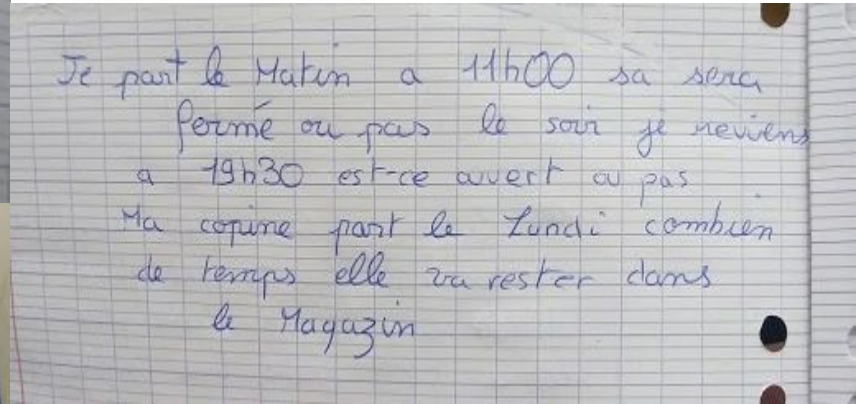 Je part le Matin a 11h00 sa sera
fermé ou pas le soir je reviens
a 19h30 est-ce ouvert ou pas
Ma copine part le Lundi combien
de temps elle va rester dans
le Magazin